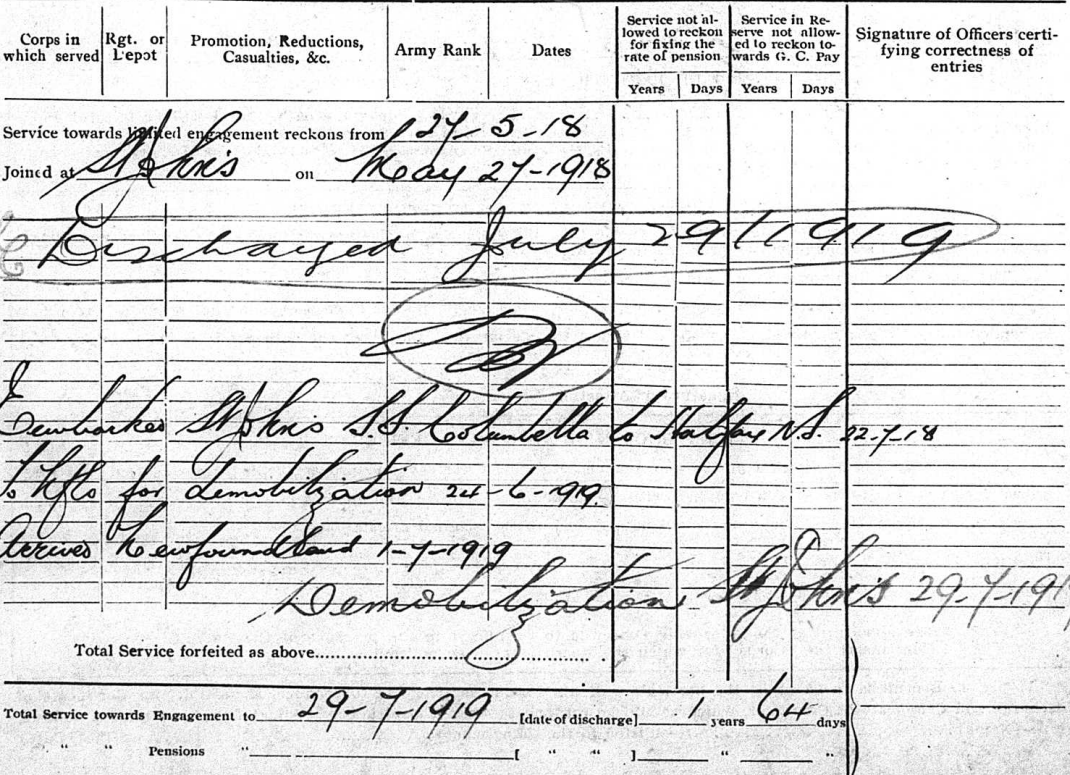 Corps in which served
Rgt. or Depot
Promotion, Reductions, Casualties, &c.
Army Rank
Dates
Service not allowed to reckon for fixing the rate of pension
Service in Reserve not allowed to reckon towards G. C. Pay
Signature of Officers certifying correctness of entries
Years Days Years Days
Service towards limited engagement reckons from 27-5-18
Joined at St John's on May 27-1918
Discharged July 29/1919
Embarked St John's S.S. Columbella to Halifax N.S. 22-7-18
To Nfld for demobilization 24-6-1919
Arrived Newfoundland 1-7-1919
Demobilization St John's 29-7-191
Total Service forfeited as above
Total Service towards Engagement to 29-7-1919 [date of discharge] 1 years 64 days
" " Pensions " [ " " ] " "